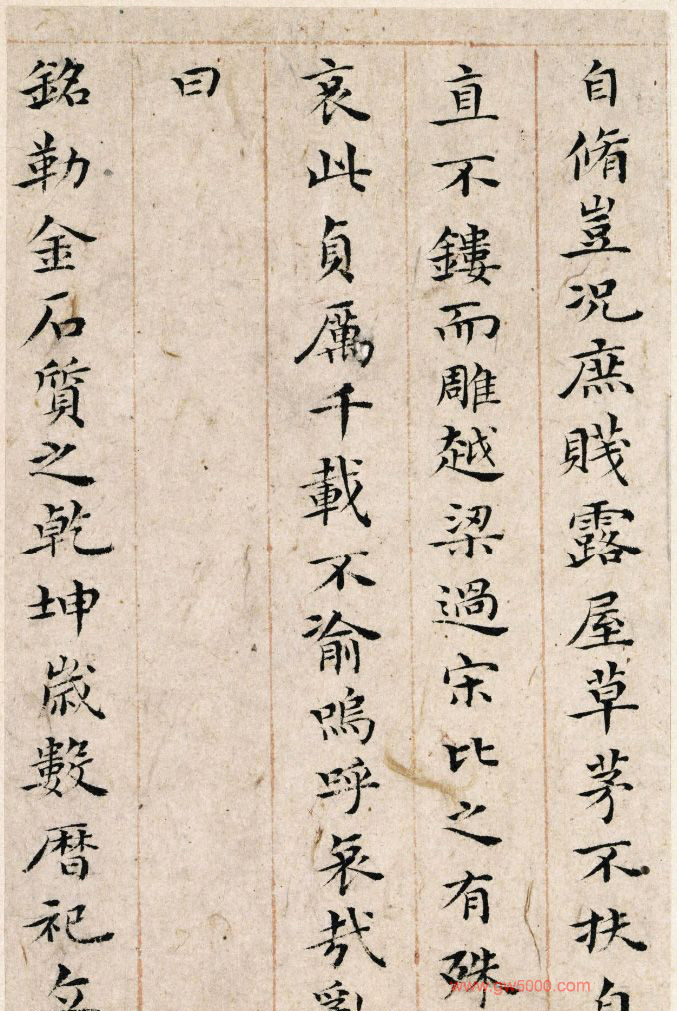 自脩豈況庶賤露屋草茅不扶自
直不鏤而雕越梁過宋比之有殊
哀此貞厲千載不渝嗚呼哀哉亂
曰
銘勒金石質之乾坤歲數曆祀
www.gw5000.com